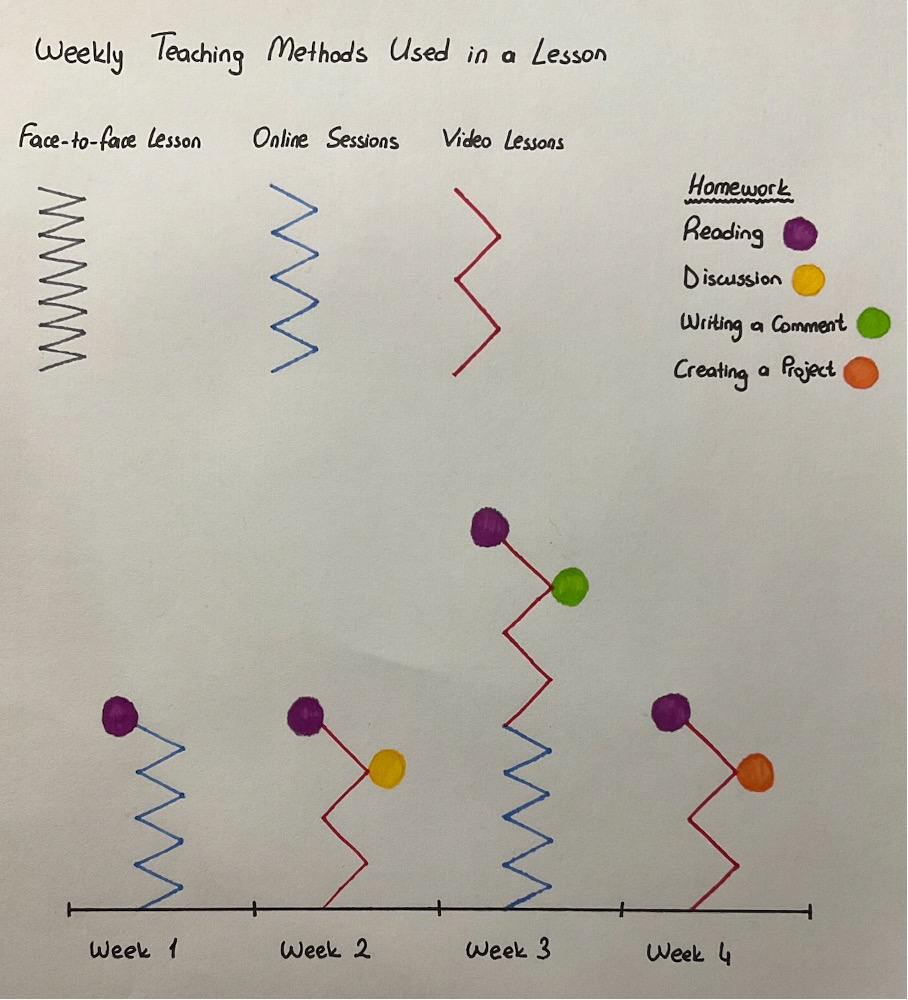 Weekly Teaching Methods Used in a Lesson
Face-to-face Lesson
Online Sessions
Video Lessons
Homework
Reading
Discussion
Writing a Comment
Creating a Project
Week 1
Week 2
Week 3
Week 4